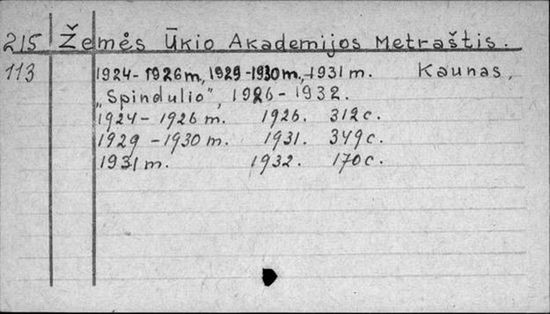 215 Žemės Ūkio Akademijos Metraštis.
113 1924-1926 m., 1929-1930 m., 1931 m. Kaunas,
„Spindulio", 1926-1932.
1924-1926 m. 1926. 312 c.
1929-1930 m. 1931. 349 c.
1931 m. 1932. 170 c.